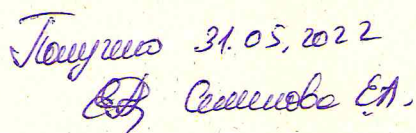 Получено 31.05.2022
Семенова Е.А.